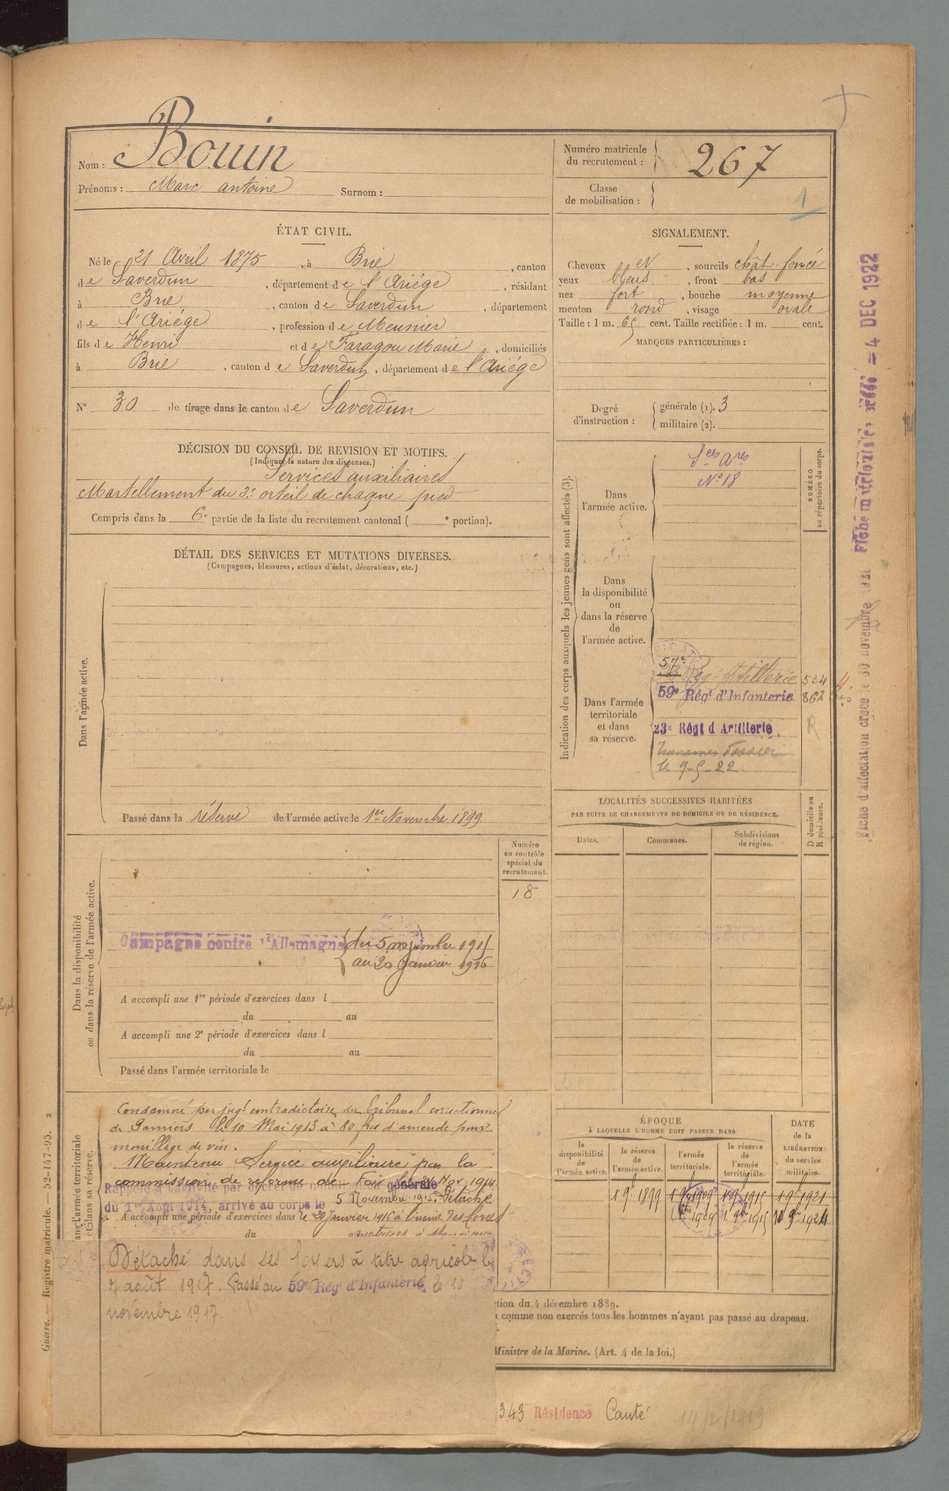 Nom : Bouin
Prénoms : Marc antoine Surnom :
Numéro matricule
du recrutement : 267
Classe
de mobilisation :
1
ÉTAT CIVIL.
Né le 21 Avril 1875, à Brie, canton
de Saverdun, département de l'Ariége, résidant
à Brie, canton de Saverdun, département
de l'Ariége, profession de Meunier
fils de Henri et de Faragou Marie, domiciliés
à Brie, canton de Saverdun, département de l'Ariége
N° 30 de tirage dans le canton de Saverdun
SIGNALEMENT.
Cheveux et, sourcils chât. foncé
yeux bleus, front bas
nez fort, bouche moyenne
menton rond, visage ovale
Taille : 1 m. 65 cent. Taille rectifiée : 1 m. cent.
MARQUES PARTICULIÈRES :
Degré
d'instruction :
générale (1). 3
militaire (2).
DÉCISION DU CONSEIL DE REVISION ET MOTIFS.
(Indiquer la nature des dispenses.)
Services auxiliaires
Martellement du 3e orteil de chaque pied
Compris dans la 6e partie de la liste du recrutement cantonal ( e portion).
DÉTAIL DES SERVICES ET MUTATIONS DIVERSES.
(Campagnes, blessures, actions d'éclat, décorations, etc.)
Dans l'armée active.
Passé dans la réserve de l'armée active le 1er Novembre 1899
Indication des corps auxquels les jeunes gens sont affectés (3).
Dans
l'armée active.
Ses Ares
N° 18
NUMÉRO
au répertoire du corps.
Dans
la disponibilité
ou
dans la réserve
de
l'armée active.
Dans l'armée
territoriale
et dans
sa réserve.
57e
Rég. Artillerie 534
59e Régt d'Infanterie 862
23e Régt d'Artillerie R
le 9-5-22
Fiche d'affectation créée le 30 novembre
4 DEC 1922
LOCALITÉS SUCCESSIVES HABITÉES
PAR SUITE DE CHANGEMENTS DE DOMICILE OU DE RÉSIDENCE.
Dates. Communes. Subdivisions
de région.
D domicile ou
R résidence.
Dans la disponibilité
ou dans la réserve de l'armée active.
Numéro
au contrôle
spécial du
recrutement.
18
Campagne contre l'Allemagne
du 5 novembre 1915
au 20 janvier 1916
A accompli une 1re période d'exercices dans l
du au
A accompli une 2e période d'exercices dans l
du au
Passé dans l'armée territoriale le
Condamné par jugt contradictoire du tribunal correctionnel
de Pamiers le 10 Mai 1913 à 80 frs d'amende pour
mouillage de vin.
Maintenu Service auxiliaire par la
commission de réforme de Foix le Nov. 1914
générale
du 1er Août 1914, arrivé au corps le 5 Novembre 1915. Détaché
A accompli une période d'exercices dans le 20 janvier 1916 à l'usine des forces
du
Détaché dans ses foyers à titre agricole le
7 août 1917. Passé au 59e Régt d'Infanterie le 10
novembre 1917.
ÉPOQUE
À LAQUELLE L'HOMME DOIT PASSER DANS
la
disponibilité
de
l'armée active.
la réserve
de
l'armée active.
l'armée
territoriale.
la réserve
de l'armée
territoriale.
DATE
de la
LIBÉRATION
du service
militaire.
1 9e 1899
ction du 4 décembre 1889.
comme non exercés tous les hommes n'ayant pas passé au drapeau.
Ministre de la Marine. (Art. 4 de la loi.)
343 Résidence Canté 14/2/1919
Guerre. — Registre matricule. — 52-147-95. 2